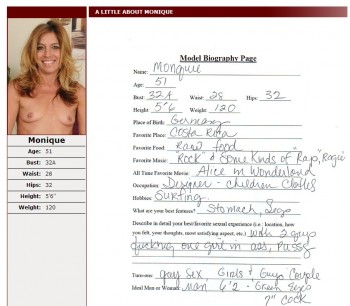 A LITTLE ABOUT MONIQUE
Model Biography Page
Name: Monique
Age: 51
Bust: 32A Waist: 28 Hips: 32
Height: 5'6 Weight: 120
Place of Birth: Germany
Favorite Place: Costa Rica
Favorite Food: Raw food
Favorite Music: "Rock" & Some Kinds of "Rap", Ragie
All Time Favorite Movie: Alice in Wonderland
Occupation: Designer - children clothes
Hobbies: Surfing
What are your best features? Stomach, Legs
Describe in detail your best/favorite sexual experience (i.e.: location, how
you felt, your thoughts, most satisfying aspect, etc.) with 2 guys
fucking one girl in ass, pussy
Turn-ons: gay sex, Girls & Guys Couple
Ideal Man or Woman: Man 6'2 - Green Eyes
7" cock
Monique
Age: 51
Bust: 32A
Waist: 28
Hips: 32
Height: 5'6"
Weight: 120